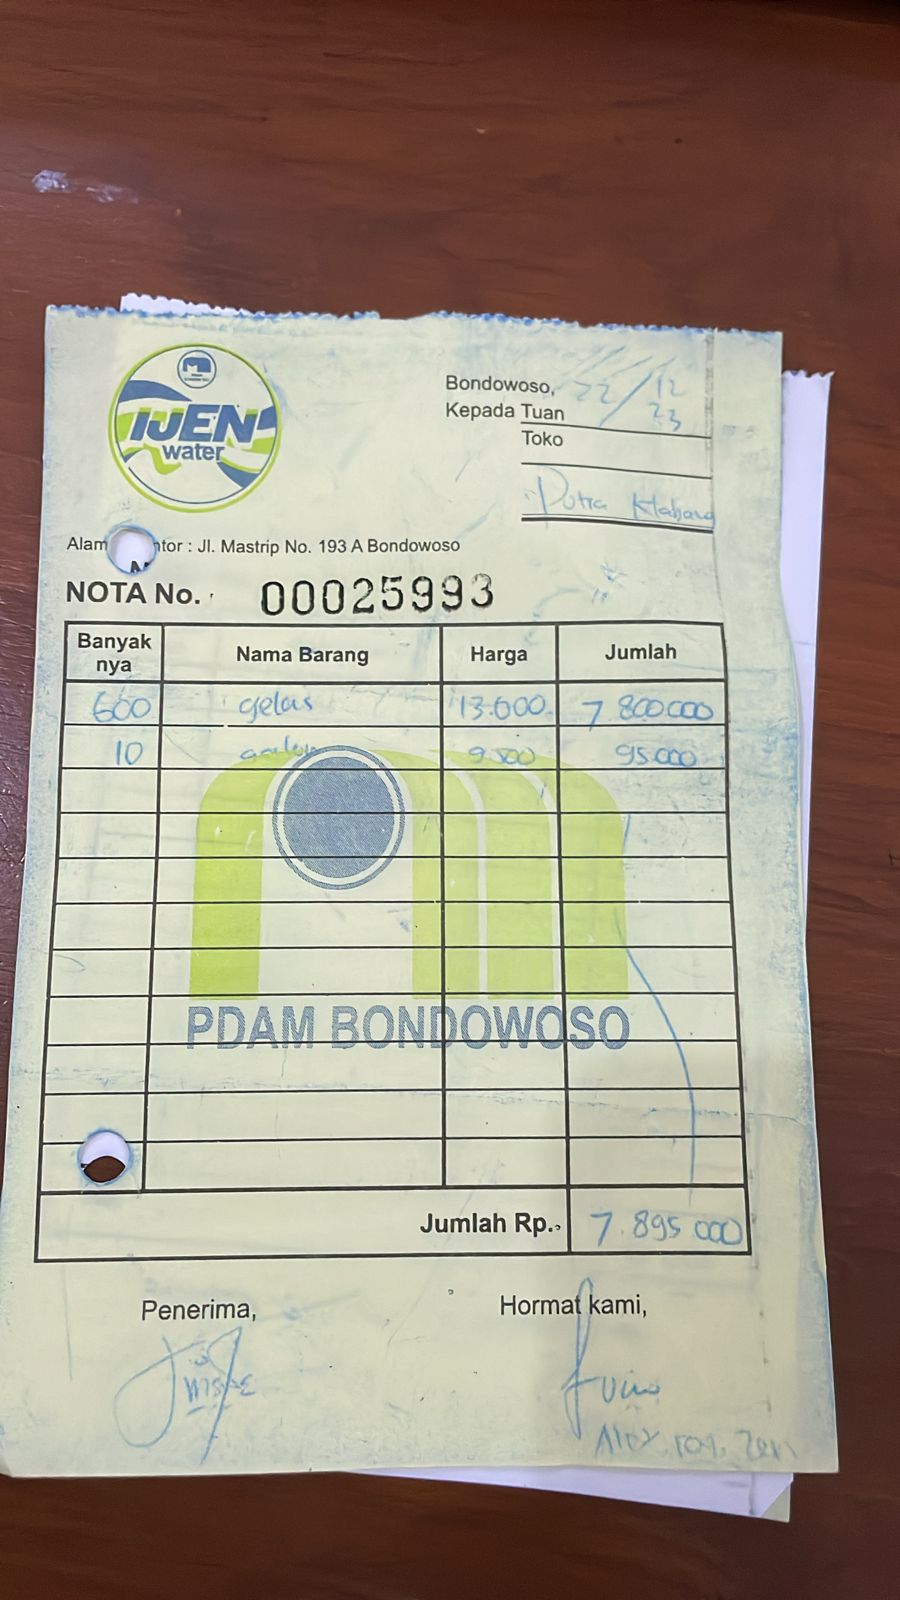 IJEN
water
Bondowoso, 22/12
23
Kepada Tuan
Toko
Putra Klabang
Alam ntor : Jl. Mastrip No. 193 A Bondowoso
NOTA No. 00025993
Banyak nya Nama Barang Harga Jumlah
600 gelas 13.000 7 800 000
10 galon 9.500 95.000
PDAM BONDOWOSO
Jumlah Rp. 7.895 000
Penerima, Hormat kami,